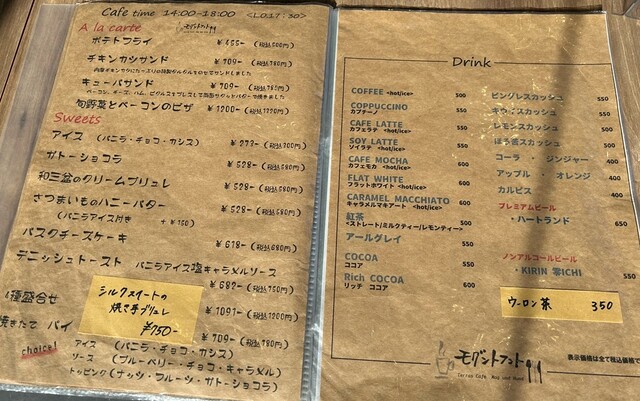 Cafe time 14:00-18:00 <L.O 17:30>
A la carte
モグントフント
ポテトフライ ¥455-(税込500円)
チキンカツサンド ¥709-(税込780円)
キューバサンド ¥709-(税込780円)
旬野菜とベーコンのピザ ¥1200-(税込1320円)
Sweets
アイス (バニラ・チョコ・カシス) ¥273-(税込300円)
ガトーショコラ ¥528-(税込580円)
和三盆のクリームブリュレ ¥528-(税込580円)
さつまいものハニーバター ¥528-(税込580円)
(バニラアイス付き +¥150)
バスクチーズケーキ ¥618-(税込680円)
デニッシュトースト バニラアイス塩キャラメルソース
¥682-(税込750円)
種盛合せ ¥1091-(税込1200円)
焼きたて パイ ¥709-(税込780円)
シルクスイートの
焼き芋ブリュレ
¥750-
choice!
アイス (バニラ・チョコ・カシス)
ソース (ブルーベリー・チョコ・キャラメル)
トッピング(ナッツ・フルーツ・ガトーショコラ)
Drink
COFFEE <hot/ice> 500
COPPUCCINO
カプチーノ 550
CAFE LATTE
カフェラテ <hot/ice> 550
SOY LATTE
ソイラテ <hot/ice> 550
CAFE MOCHA
カフェモカ <hot/ice> 600
FLAT WHITE
フラットホワイト <hot/ice> 600
CARAMEL MACCHIATO
キャラメルマキアート <hot/ice> 600
紅茶
<ストレート/ミルクティー/レモンティー> 500
アールグレイ 550
COCOA
ココア 550
Rich COCOA
リッチ ココア 600
ピングレスカッシュ 550
キウィスカッシュ 550
レモンスカッシュ 550
スカッシュ 550
コーラ ・ ジンジャー 400
アップル ・ オレンジ 400
カルピス 400
プレミアムビール
・ハートランド 650
ノンアルコールビール
・KIRIN 零ICHI 550
ウーロン茶 350
モグントフント
Terrace Cafe Mog und Hund
表示価格は全て税込価格で